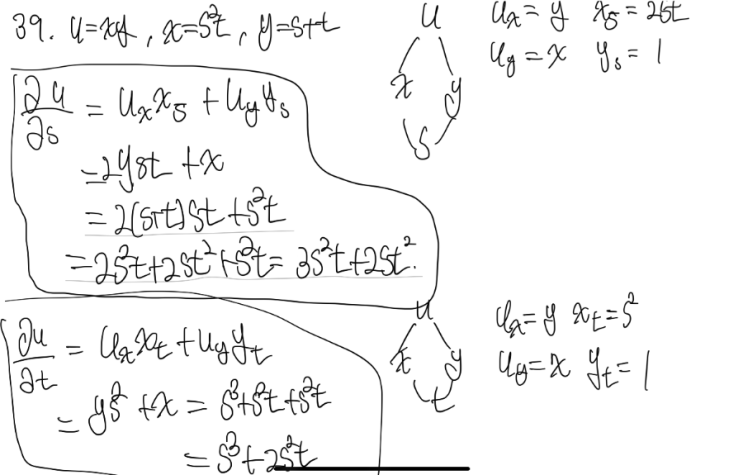 39. u=xy, x=s²t, y=s+t
u
x y
s
uₓ= y xₛ=2st
u_y=x yₛ= 1
∂u/∂s = uₓxₛ + u_y yₛ
=2yst +x
= 2(s+t)st+s²t
=2s²t+2st²+s²t= 3s²t+2st².
u
x y
t
uₓ= y xₜ=s²
u_y=x yₜ= 1
∂u/∂t = uₓxₜ+u_y yₜ
= ys² +x = s³+s²t+s²t
= s³+2s²t